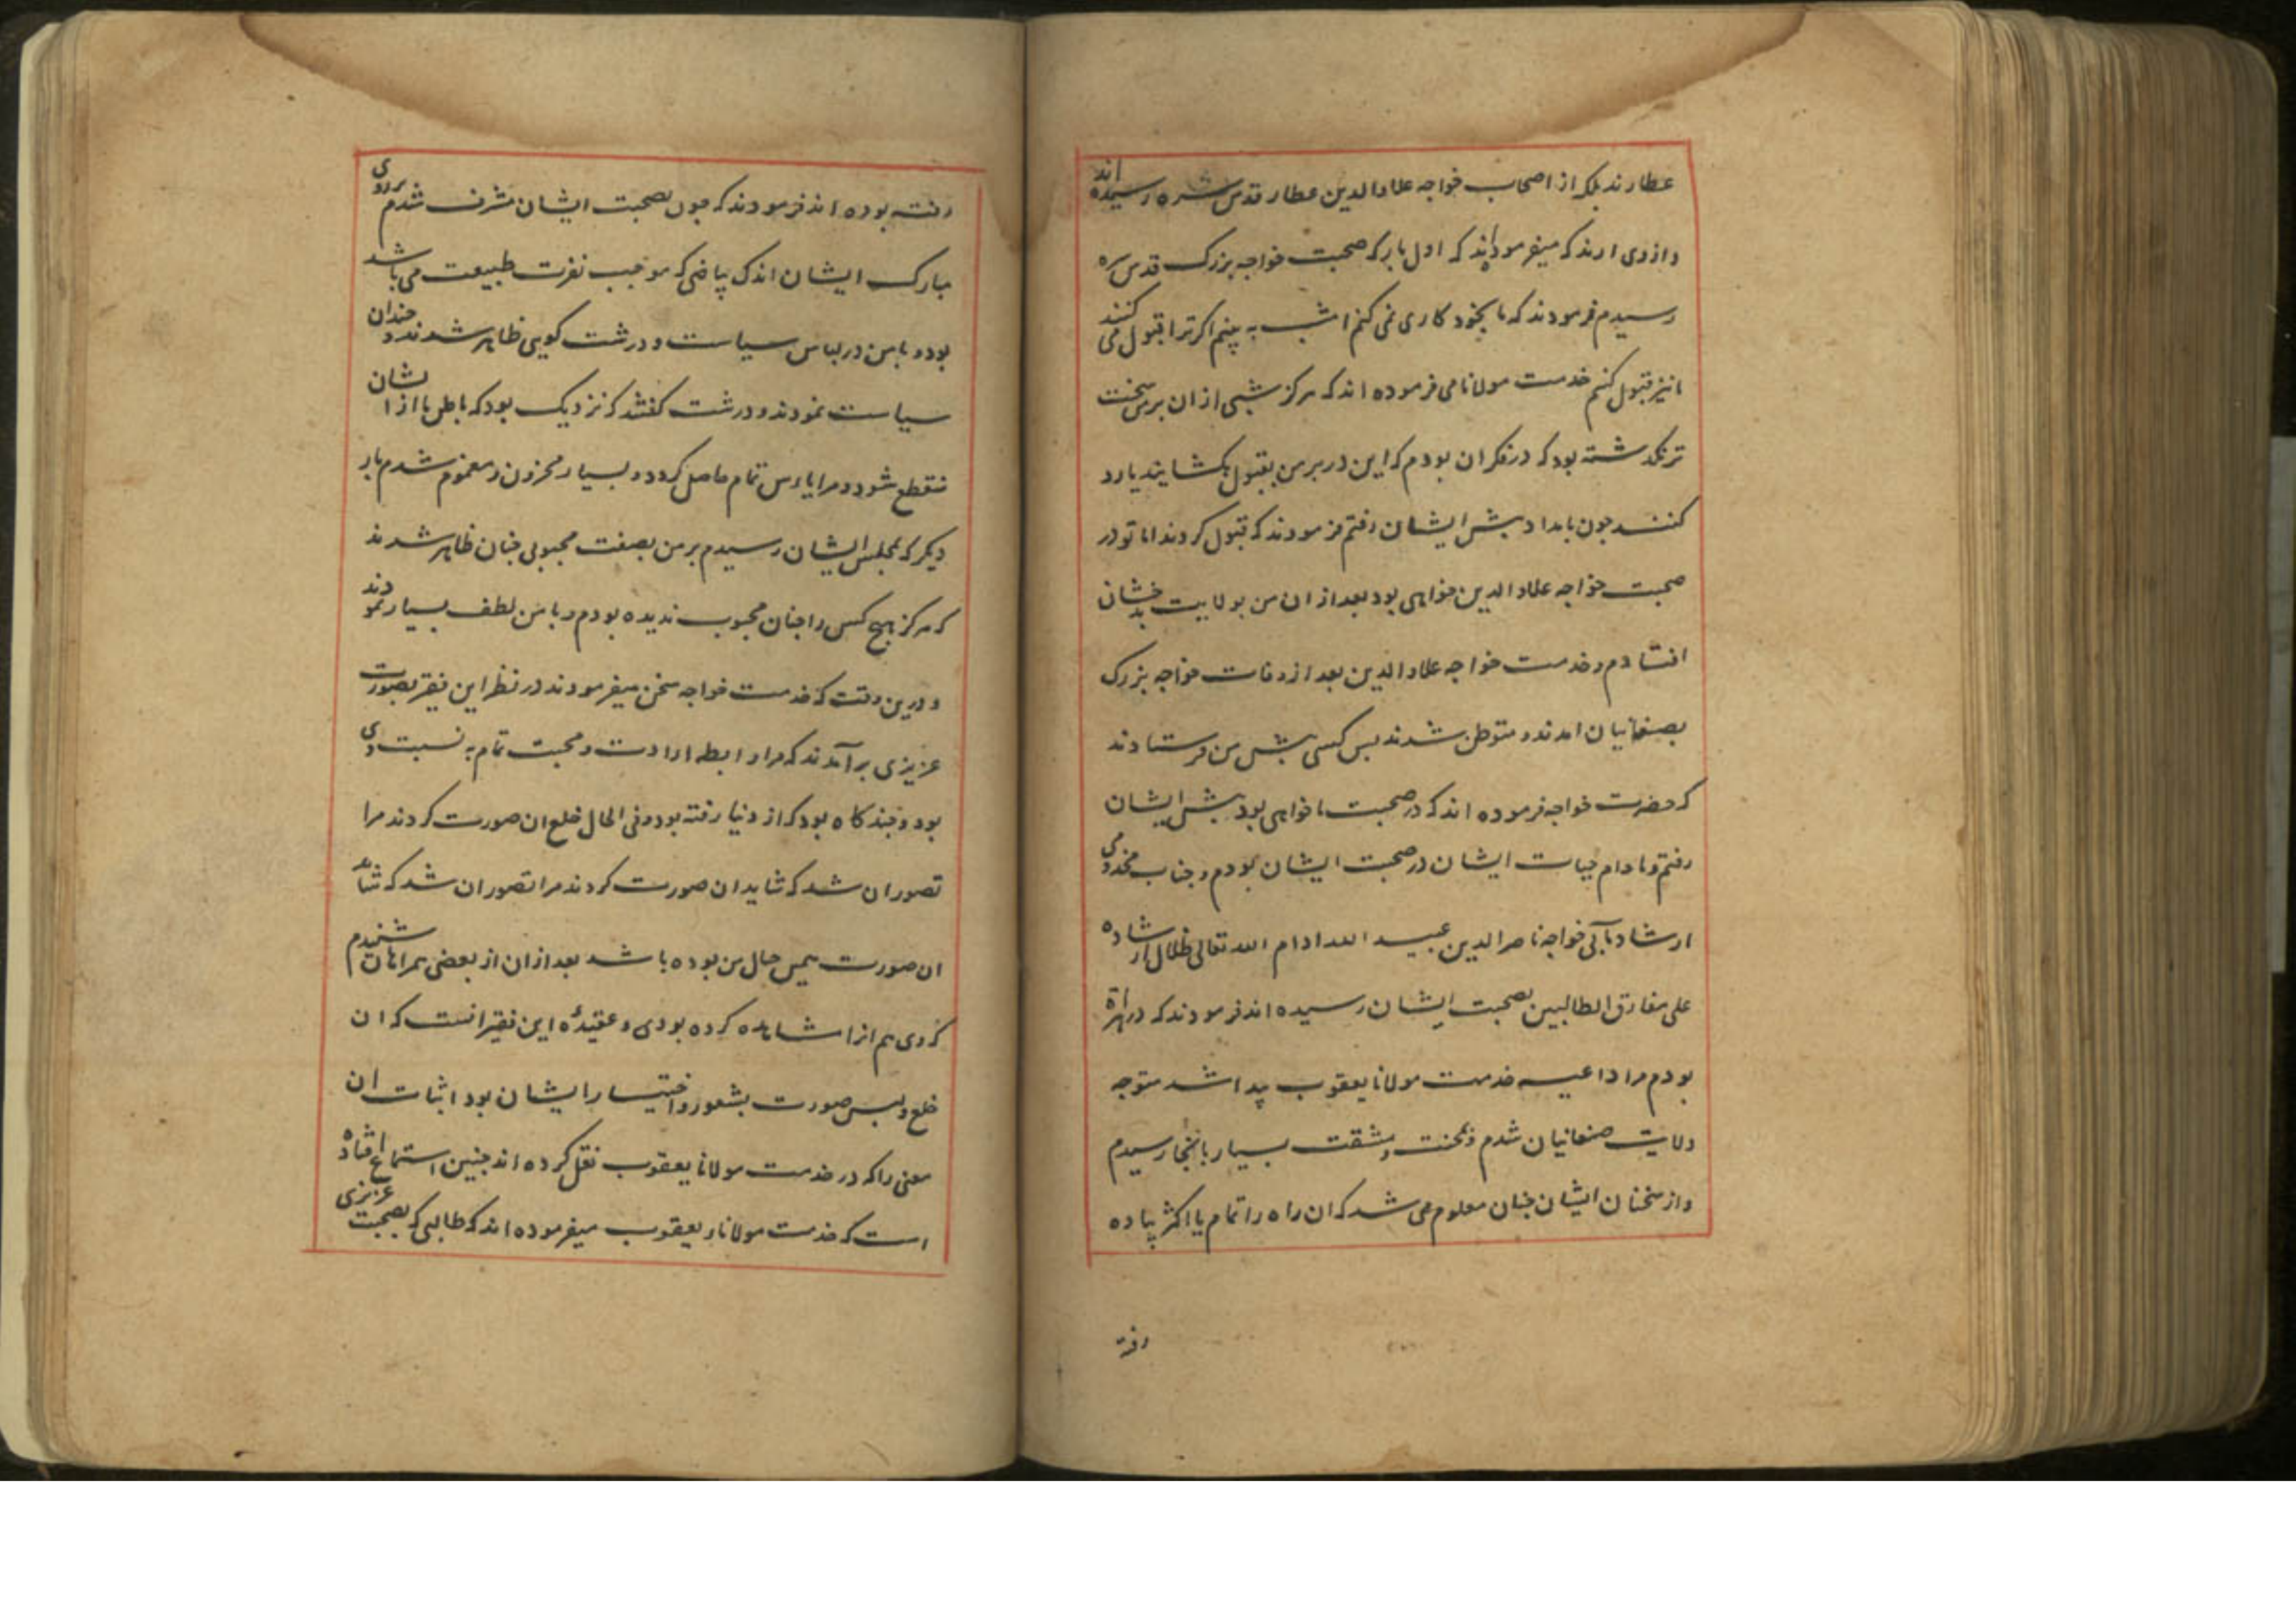 عطارند بلکه از اصحاب خواجه علاوالدین عطار قدس سره رسیده اند
و از وی ارند که میفرموده اند که اول بار که صحبت خواجه بزرک قدس سره
رسیدم فرمودند که ما بخود کاری نمی کنم امشب به بینم اکر ترا قبول می کنند
ما نیز قبول کنم خدمت مولانا می فرموده اند که هرکز شبی از ان بر من سخت
تر نکذشته بود که در فکر ان بودم که این در بر من بقبول بکشایند یا رد
کنند جون بامداد پیش ایشان رفتم فرمودند که قبول کردند اما تو در
صحبت خواجه علاوالدین خواهی بود بعد از ان من بولایت بدخشان
افتادم و خدمت خواجه علاوالدین بعد از وفات خواجه بزرک
بصنغانیان امدند و متوطن شدند بس کسی پیش من فرستادند
که حضرت خواجه فرموده اند که در صحبت ما خواهی بود پیش ایشان
رفتم و ما دام حیات ایشان در صحبت ایشان بودم و جناب مخدومی
ارشاد مآبی خواجه ناصرالدین عبید الله ادام الله تعالی ظلال ارشاده
علی مفارق الطالبین بصحبت ایشان رسیده اند فرمودند که در هراة
بودم مرا داعیه خدمت مولانا یعقوب پیدا شد متوجه
ولایت صنغانیان شدم و بمحنت و مشقت بسیار بانجا رسیدم
و از سخنان ایشان جنان معلوم می شد که ان راه را تمام یا اکثر پیاده
رفته
رفته بوده اند فرمودند که جون بصحبت ایشان مشرف شدم بر روی
مبارک ایشان اندک بیاضی که موجب نفرت طبیعت می باشد
بود و با من در لباس سیاست و درشت کویی ظاهر شدند و جندان
سیاست نمودند و درشت کفتند که نزدیک بود که باطن ما از ایشان
منقطع شود و مرا یاءس تمام حاصل کردد و بسیار محزون و مغموم شدم بار
دیکر که بمجلس ایشان رسیدم بر من بصفت محبوبی جنان ظاهر شدند
که هرکز هیچ کس را جنان محبوب ندیده بودم و با من لطف بسیار نمودند
و درین وقت که خدمت خواجه سخن میفرمودند در نظر این فقیر بصورت
عزیزی برآمدند که مرا رابطه ارادت و محبت تمام به نسبت وی
بود و جند کاه بود که از دنیا رفته بود و فی الحال خلع ان صورت کردند مرا
تصور ان شد که شاید ان صورت کردند مرا تصور ان شد که شاید
ان صورت همین حال من بوده باشد بعد از ان از بعضی همراهان شنیدم
که وی هم انرا مشاهده کرده بودی و عقیدهٔ این فقیر انست که ان
خلع و لبس صورت بشعور و اختیار ایشان بود اثبات ان
معنی را که در خدمت مولانا یعقوب نقل کرده اند جنین استماع افتاده
است که خدمت مولانا یعقوب میفرموده اند که طالبی که بصحبت عزیزی